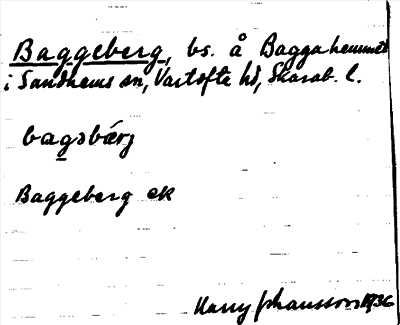 Baggeberg, bs. å Baggahemmet
i Sandhems sn, Vartofte hd, Skarab. l.
bagəbärj
Baggeberg ek
Harry Johansson 1936